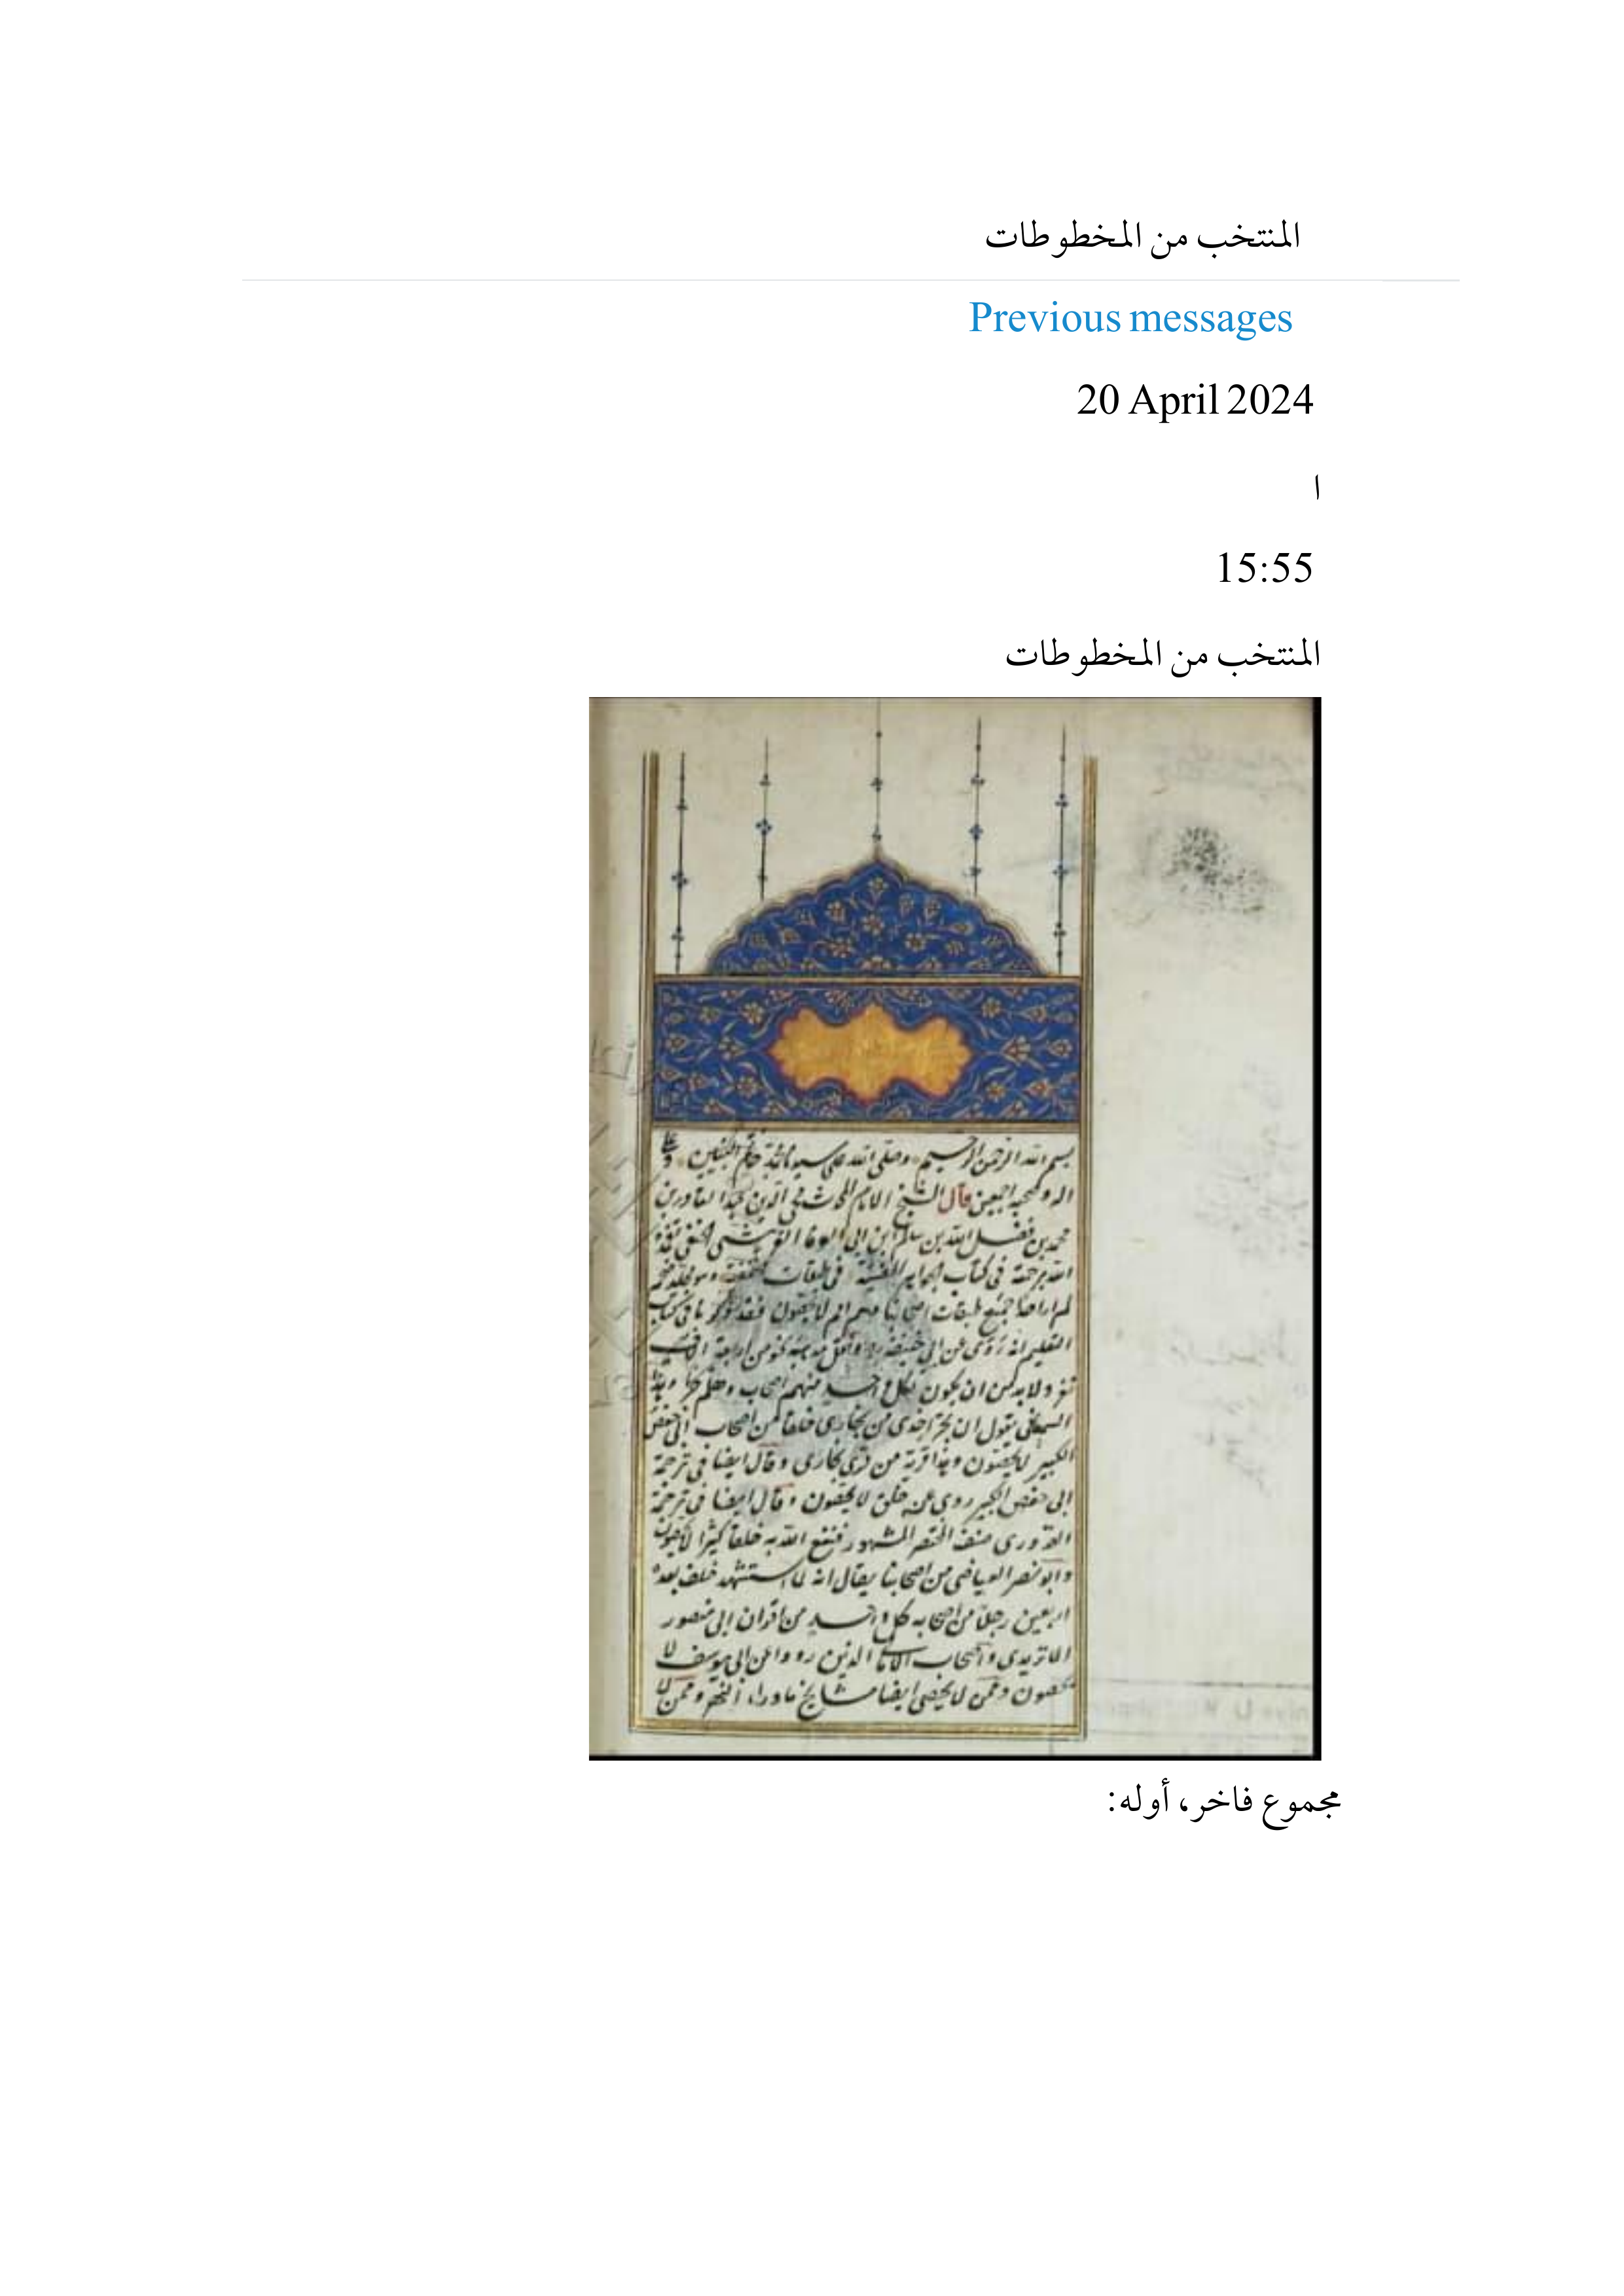 المنتخب من المخطوطات
Previous messages
20 April 2024
ا
15:55
المنتخب من المخطوطات
بسم الله الرحمن الرحيم وصلى الله على سيدنا محمد خاتم النبيين وعلى
اله وصحبه اجمعين قال الشيخ الامام المحدث محي الدين عبد القادر بن
محمد بن نصر الله بن سالم ابن ابي الوفا القرشي الحنفي تغمده
الله برحمته في كتاب الجواهر المضيئة في طبقات الحنفية
لم ار احدا جمع طبقات اصحابنا وهم امم لا يحصون فقد
التعليم انه روى عن ابي حنيفة ونقل مذهبه نحو من اربعة الاف
نفر ولا بد من ان يكون لكل واحد منهم اصحاب وهلم جرا وهذا
السمعاني يقول ان من بخارى خلقا من اصحاب ابي حفص
الكبير لا يحصون وهذا قرية من قرى بخارى وقال ايضا في ترجمة
ابي حفص الكبير روى عنه خلق لا يحصون وقال ايضا في ترجمة
القدورى صنف المختصر المشهور فنفع الله به خلقا كثيرا لا يحصون
وابو نصر العياضي من اصحابنا يقال انه لما استشهد خلف بعده
اربعين رجلا من اصحابه كل واحد من اقران ابي منصور
الماتريدى واصحاب الامالي الذين رووا عن ابي يوسف لا
يحصون وممن لا يحصى ايضا مشايخ ماوراء النهر وممن لا
مجموع فاخر، أوله: